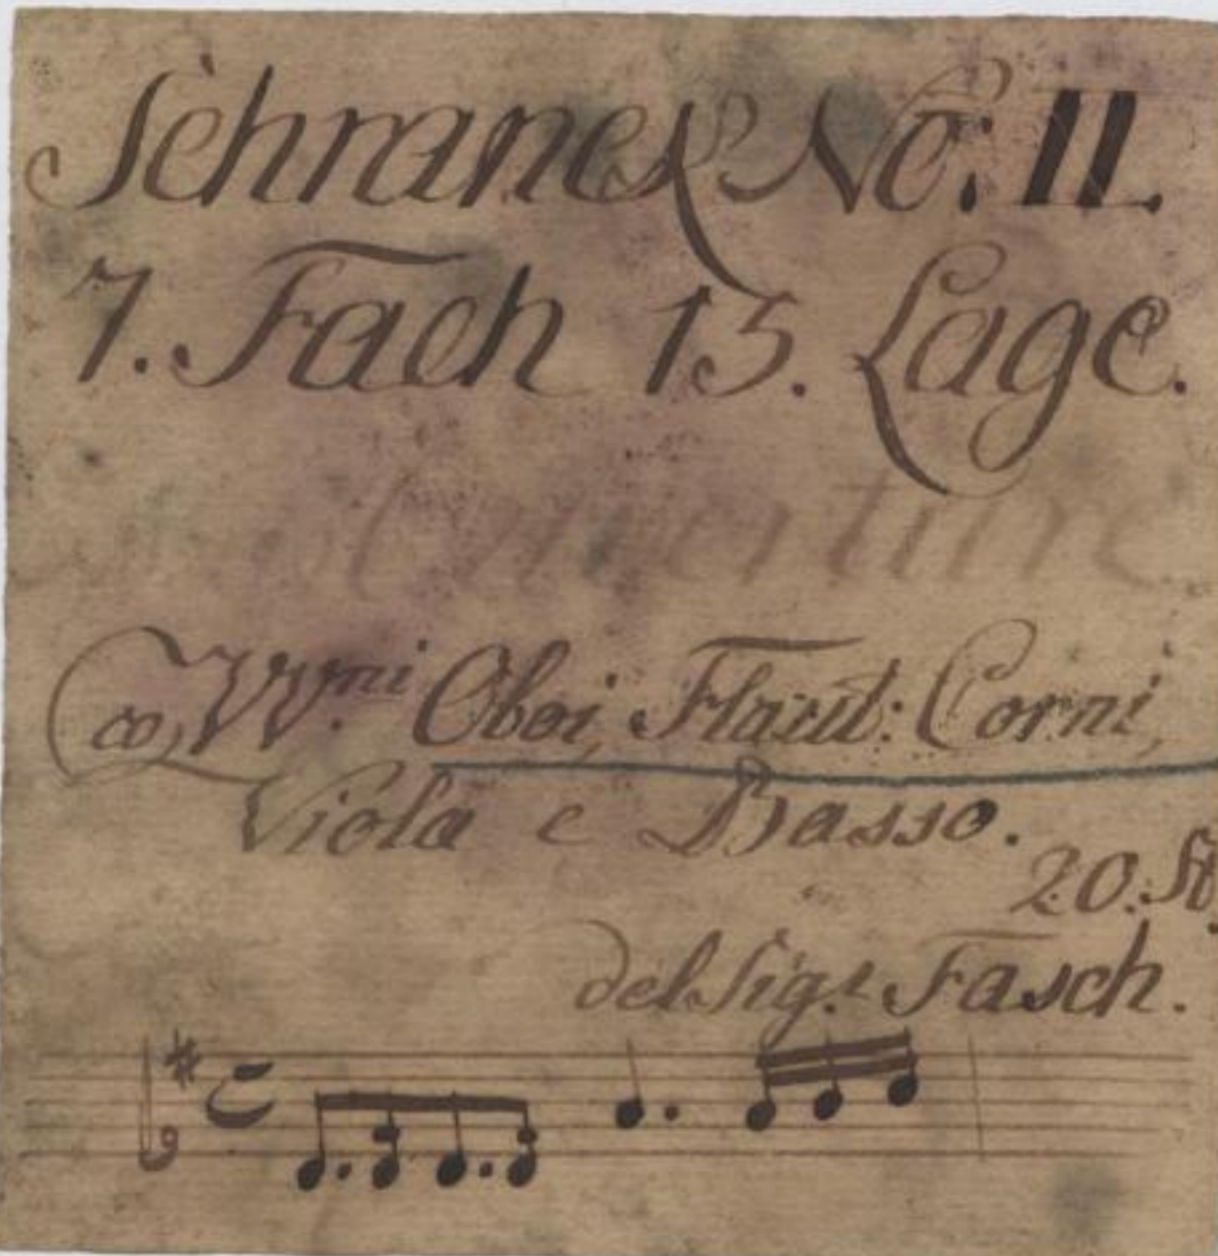 Schranck No: II.
7. Fach 15. Lage.
Ouverture
co VV.ni Oboi, Flaut: Corni,
Viola e Basso.
20. St,
del Sig.r Fasch.